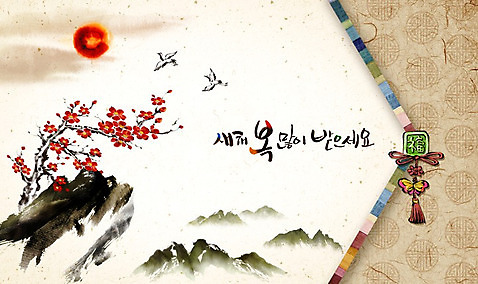 새해 복 많이 받으세요
福